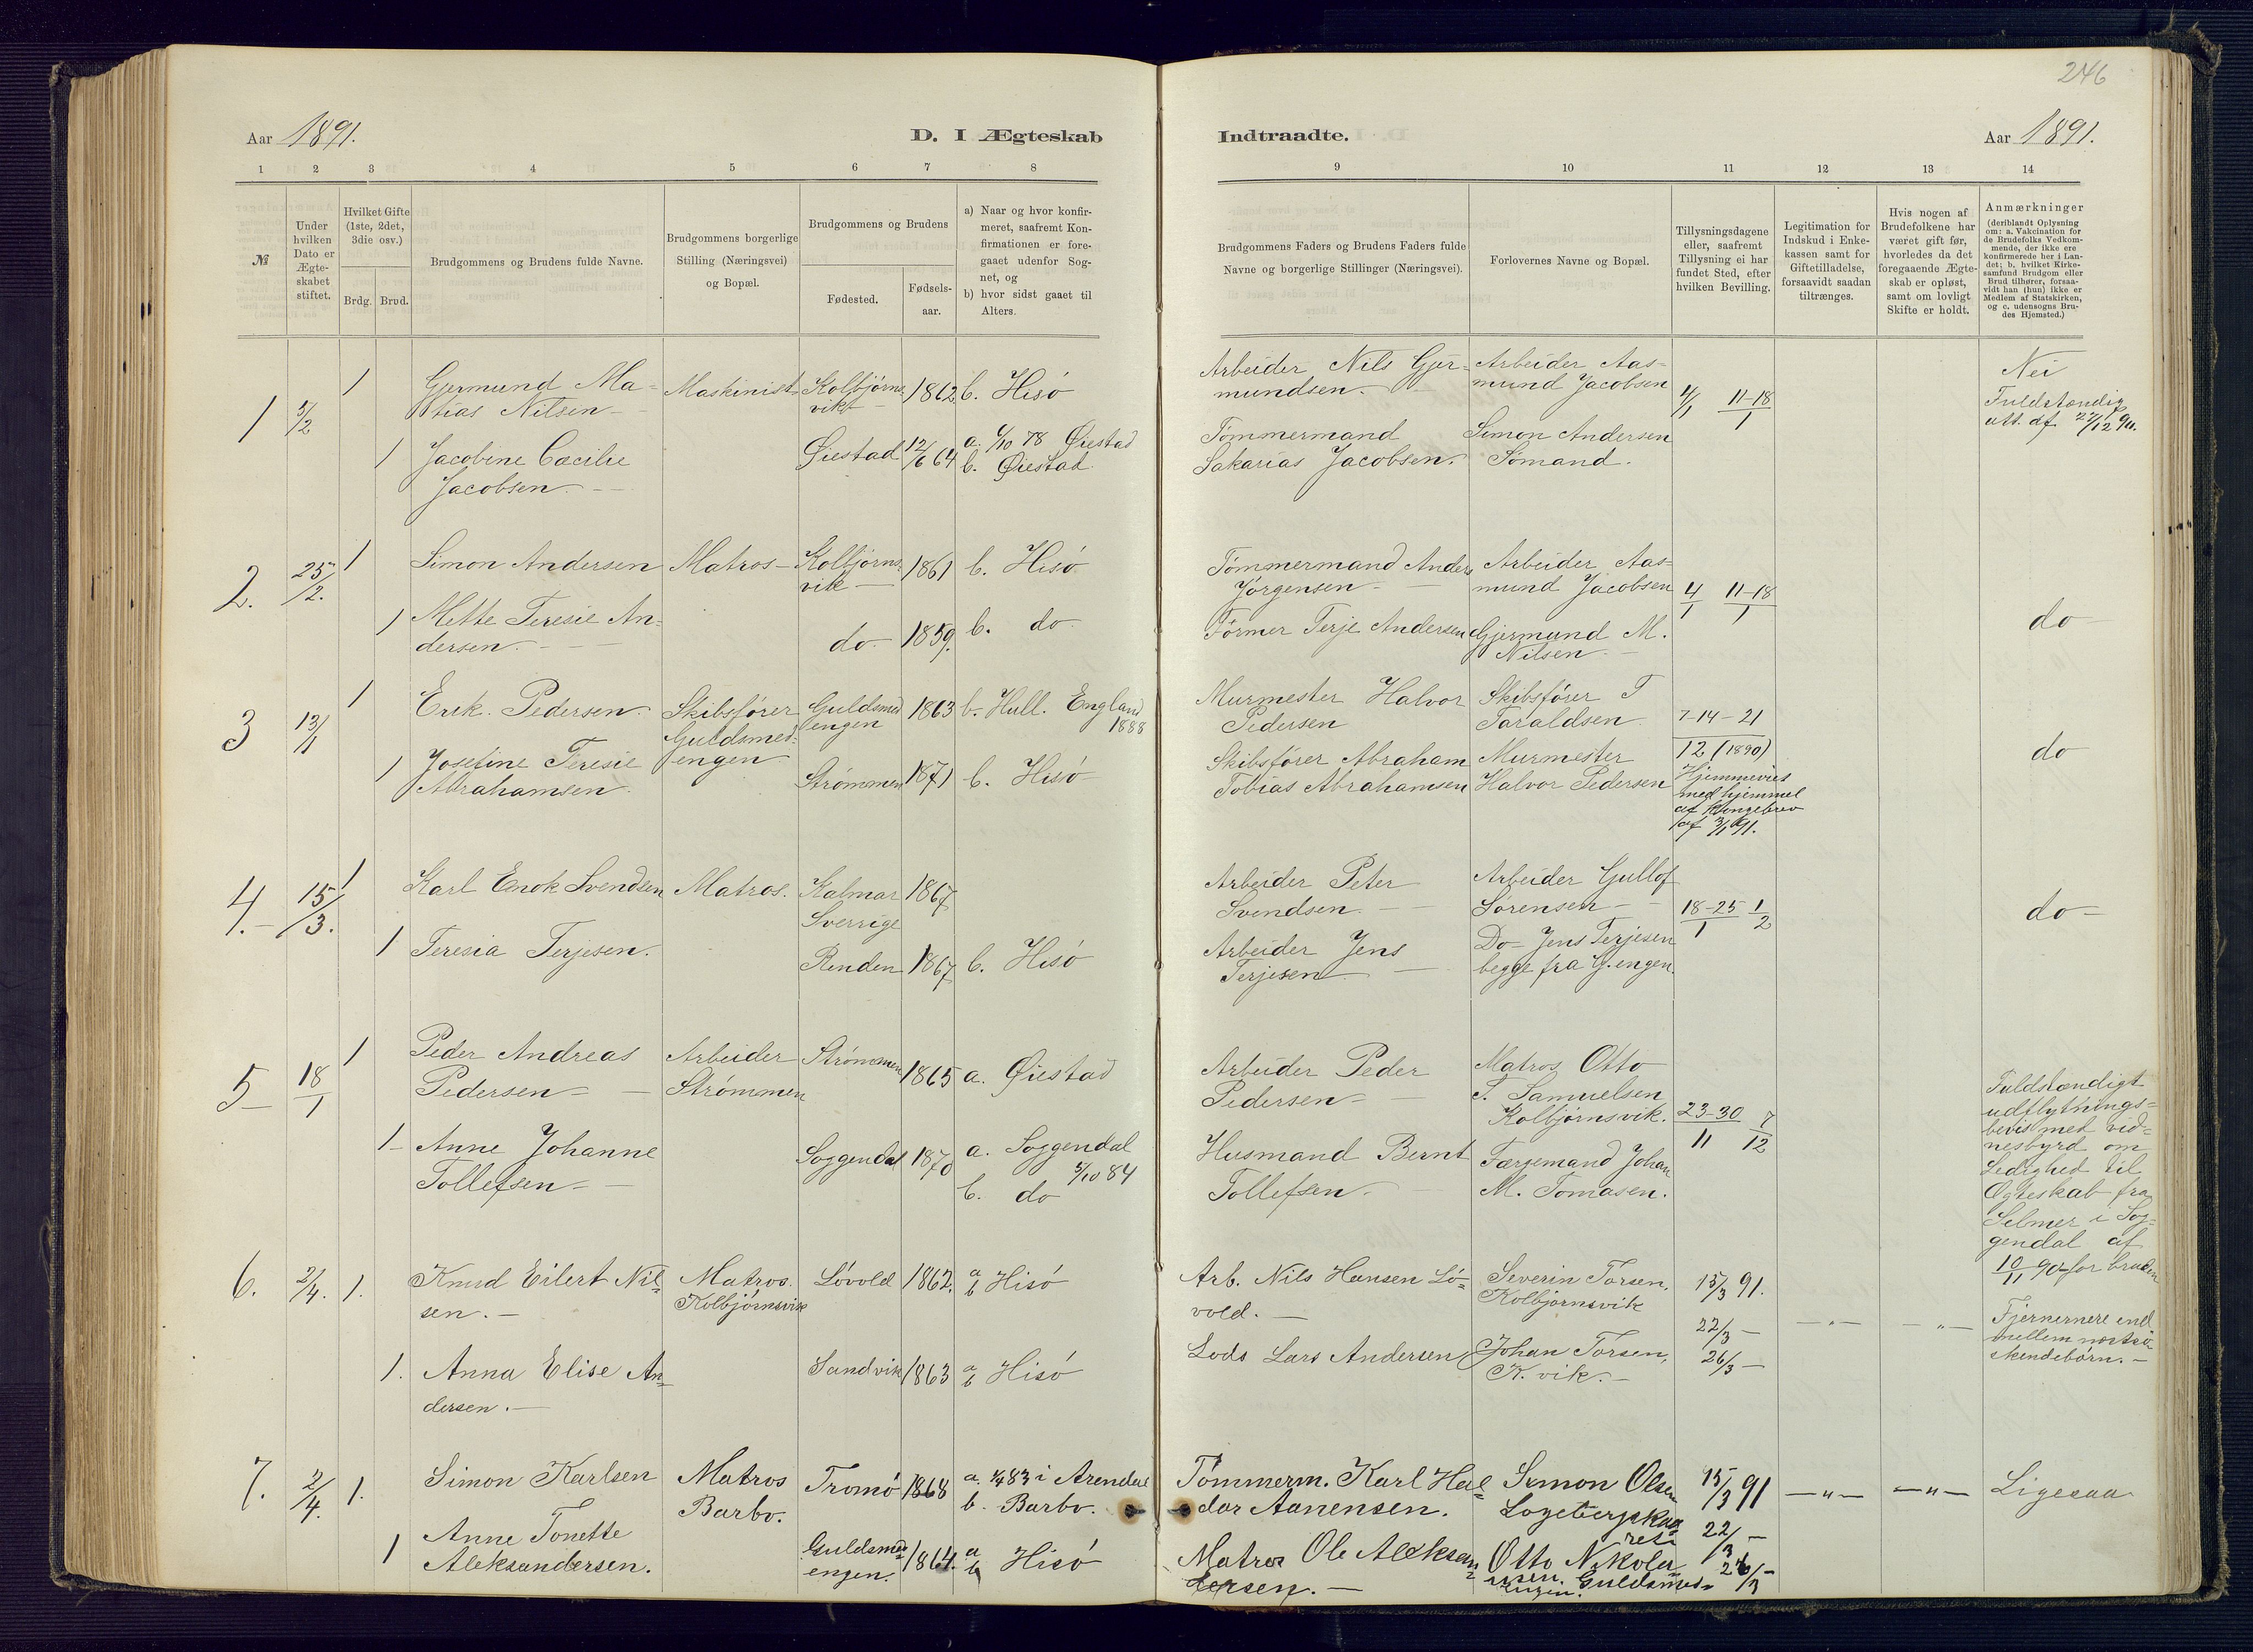 246
Aar 1891.
D. I Ægteskab
Indtraadte.
Aar 1891.
1 2 3 4 5 6 7 8
9 10 11 12 13 14
№
Under hvilken Dato er Ægte-skabet stiftet.
Hvilket Gifte (1ste, 2det, 3die osv.)
Brdg. Brud.
Brudgommens og Brudens fulde Navne.
Brudgommens borgerlige Stilling (Næringsvei) og Bopæl.
Brudgommens og Brudens
Fødested.
Fødsels-aar.
a) Naar og hvor konfir-
meret, saafremt Kon-
firmationen er fore-
gaaet udenfor Sog-
net, og
b) hvor sidst gaaet til
Alters.
Brudgommens Faders og Brudens Faders fulde
Navne og borgerlige Stillinger (Næringsvei).
Forlovernes Navne og Bopæl.
Tillysningsdagene
eller, saafremt
Tillysning ei har
fundet Sted, efter
hvilken Bevilling.
Legitimation for
Indskud i Enke-
kassen samt for
Giftetilladelse,
forsaavidt saadan
tiltrænges.
Hvis nogen af
Brudefolkene har
været gift før,
hvorledes da det
foregaaende Ægte-
skab er opløst,
samt om lovligt
Skifte er holdt.
Anmærkninger
(deriblandt Oplysning
om: a. Vakcination for
de Brudefolks Vedkom-
mende, der ikke ere
konfirmerede her i Lan-
det; b. hvilket Kirke-
samfund Brudgom eller
Brud tilhører, forsaa-
vidt han (hun) ikke er
Medlem af Statskirken,
og c. udensogns Bru-
des Hjemsted.)
1 5/2 1
Gjermund Ma-
tias Nilsen
Maskinist
Kolbjørns-
vik
1862
b. Hisø
Arbeider Nils Gjer-
mundsen.
Arbeider Aas-
mund Jacobsen
4/1 11-18/1
Nei
Fuldstændig
att. af 22/12 90.
1
Jacobine Cæcilie
Jacobsen.
Øiestad
12/6 64
a. 6/10 78 Øiestad
b. Øiestad
Tømmermand
Sakarias Jacobsen.
Simon Andersen
Sømand.
2. 25/2. 1
Simon Andersen
Matros
Kolbjørns-
vik
1861
b. Hisø
Tømmermand Anders
Jørgensen
Arbeider Aas-
mund Jacobsen
4/1 11-18/1
do
1
Mette Teresie An-
dersen.
do
1859.
b. do
Former Terje Andersen
Gjermund M.
Nilsen
3 13/1 1
Erik Pedersen
Skibsfører
Guldsmed-
engen
Guldsmed
engen
1863
b. Hull. England
1888
Murmester Halvor
Pedersen
Skibsfører T
Taraldsen
7-14-21
12 (1890)
Hjemmevies
med hjemmel
af Kongebrev
af 3/1 91.
do
1
Josefine Teresie
Abrahamsen.
Strømmen
1871
b. Hisø
Skibsfører Abraham
Tobias Abrahamsen
Murmester
Halvor Pedersen
4. 15/3. 1
Karl Enok Svendsen
Matros.
Kalmar
Sverrige
1867
Arbeider Peter
Svendsen.
Arbeider Gullof
Sørensen
18-25/1 1/2
do
1
Teresia Terjesen.
Renden
1867
b. Hisø
Arbeider Jens
Terjesen
Do Jens Terjesen
begge fra G.engen.
5 18/1 1
Peder Andreas
Pedersen
Arbeider
Strømmen
Strømmen
1865
a. Øiestad
Arbeider Peder
Pedersen
Matros Otto
T. Samuelsen
Kolbjørnsvik.
23-30/11 7/12
Fuldstændigt
udflytnings-
bevis med vid-
nesbyrd om
Ledighed til
Ægteskab fra
Selmer i Sog-
gendal af
10/11 90 for bruden
1
Anne Johanne
Tollefsen
Soggendal
1870
a. Soggendal
5/10 84
b. do
Husmand Bernt
Tollefsen
Færgemand Johan
M. Tomasen.
6. 2/4. 1.
Knud Eilert Nil-
sen.
Matros.
Kolbjørnsvik
Løvold
1862.
a
b Hisø
Arb. Nils Hansen Lø-
vold.
Severin Torsen,
Kolbjørnsvik
15/3 91.
22/3 —
26/3 —
— " — — " —
Fjernere end
mellem næstsø-
skendebørn.
1.
Anna Elise An-
dersen.
Sandvik
1863
a
b Hisø
Lods Lars Andersen
Johan Torsen,
K. vik.
7. 2/4. 1.
Simon Karlsen
Matros
Barbo.
Tromø
1868
a. 1/4 83 i Arendal
b. Barbo.
Tømmerm. Karl Hal-
dor Aanensen.
Simon Olsen
15/3 91
22/3 —
26/3 —
— " — — " —
Ligesaa
1
Anne Tonette
Aleksandersen.
Guldsmed-
engen.
1864.
a
b Hisø
Matros Ole Aleksan-
dersen.
Otto Nikolai-
sen. Guldsmed-
engen.